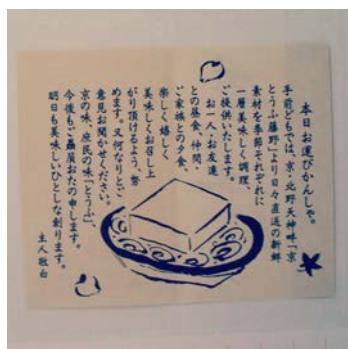 本日お運びかんしゃ。
手前どもでは、京・北野天神畔「京
とうふ藤野」より日々直送の新鮮
素材を季節それぞれに
一層美味しく調理、
ご提供いたします。
お一人、お友達
との昼食、仲間、
ご家族との夕食、
楽しく嬉しく
美味しくお召し上
がり頂けるよう、努
めます。又何なりとご
意見お聞かせください。
京の味、庶民の味「とうふ」、
今後もご贔屓おたの申します。
明日も美味しいひとしな創ります。
主人敬白